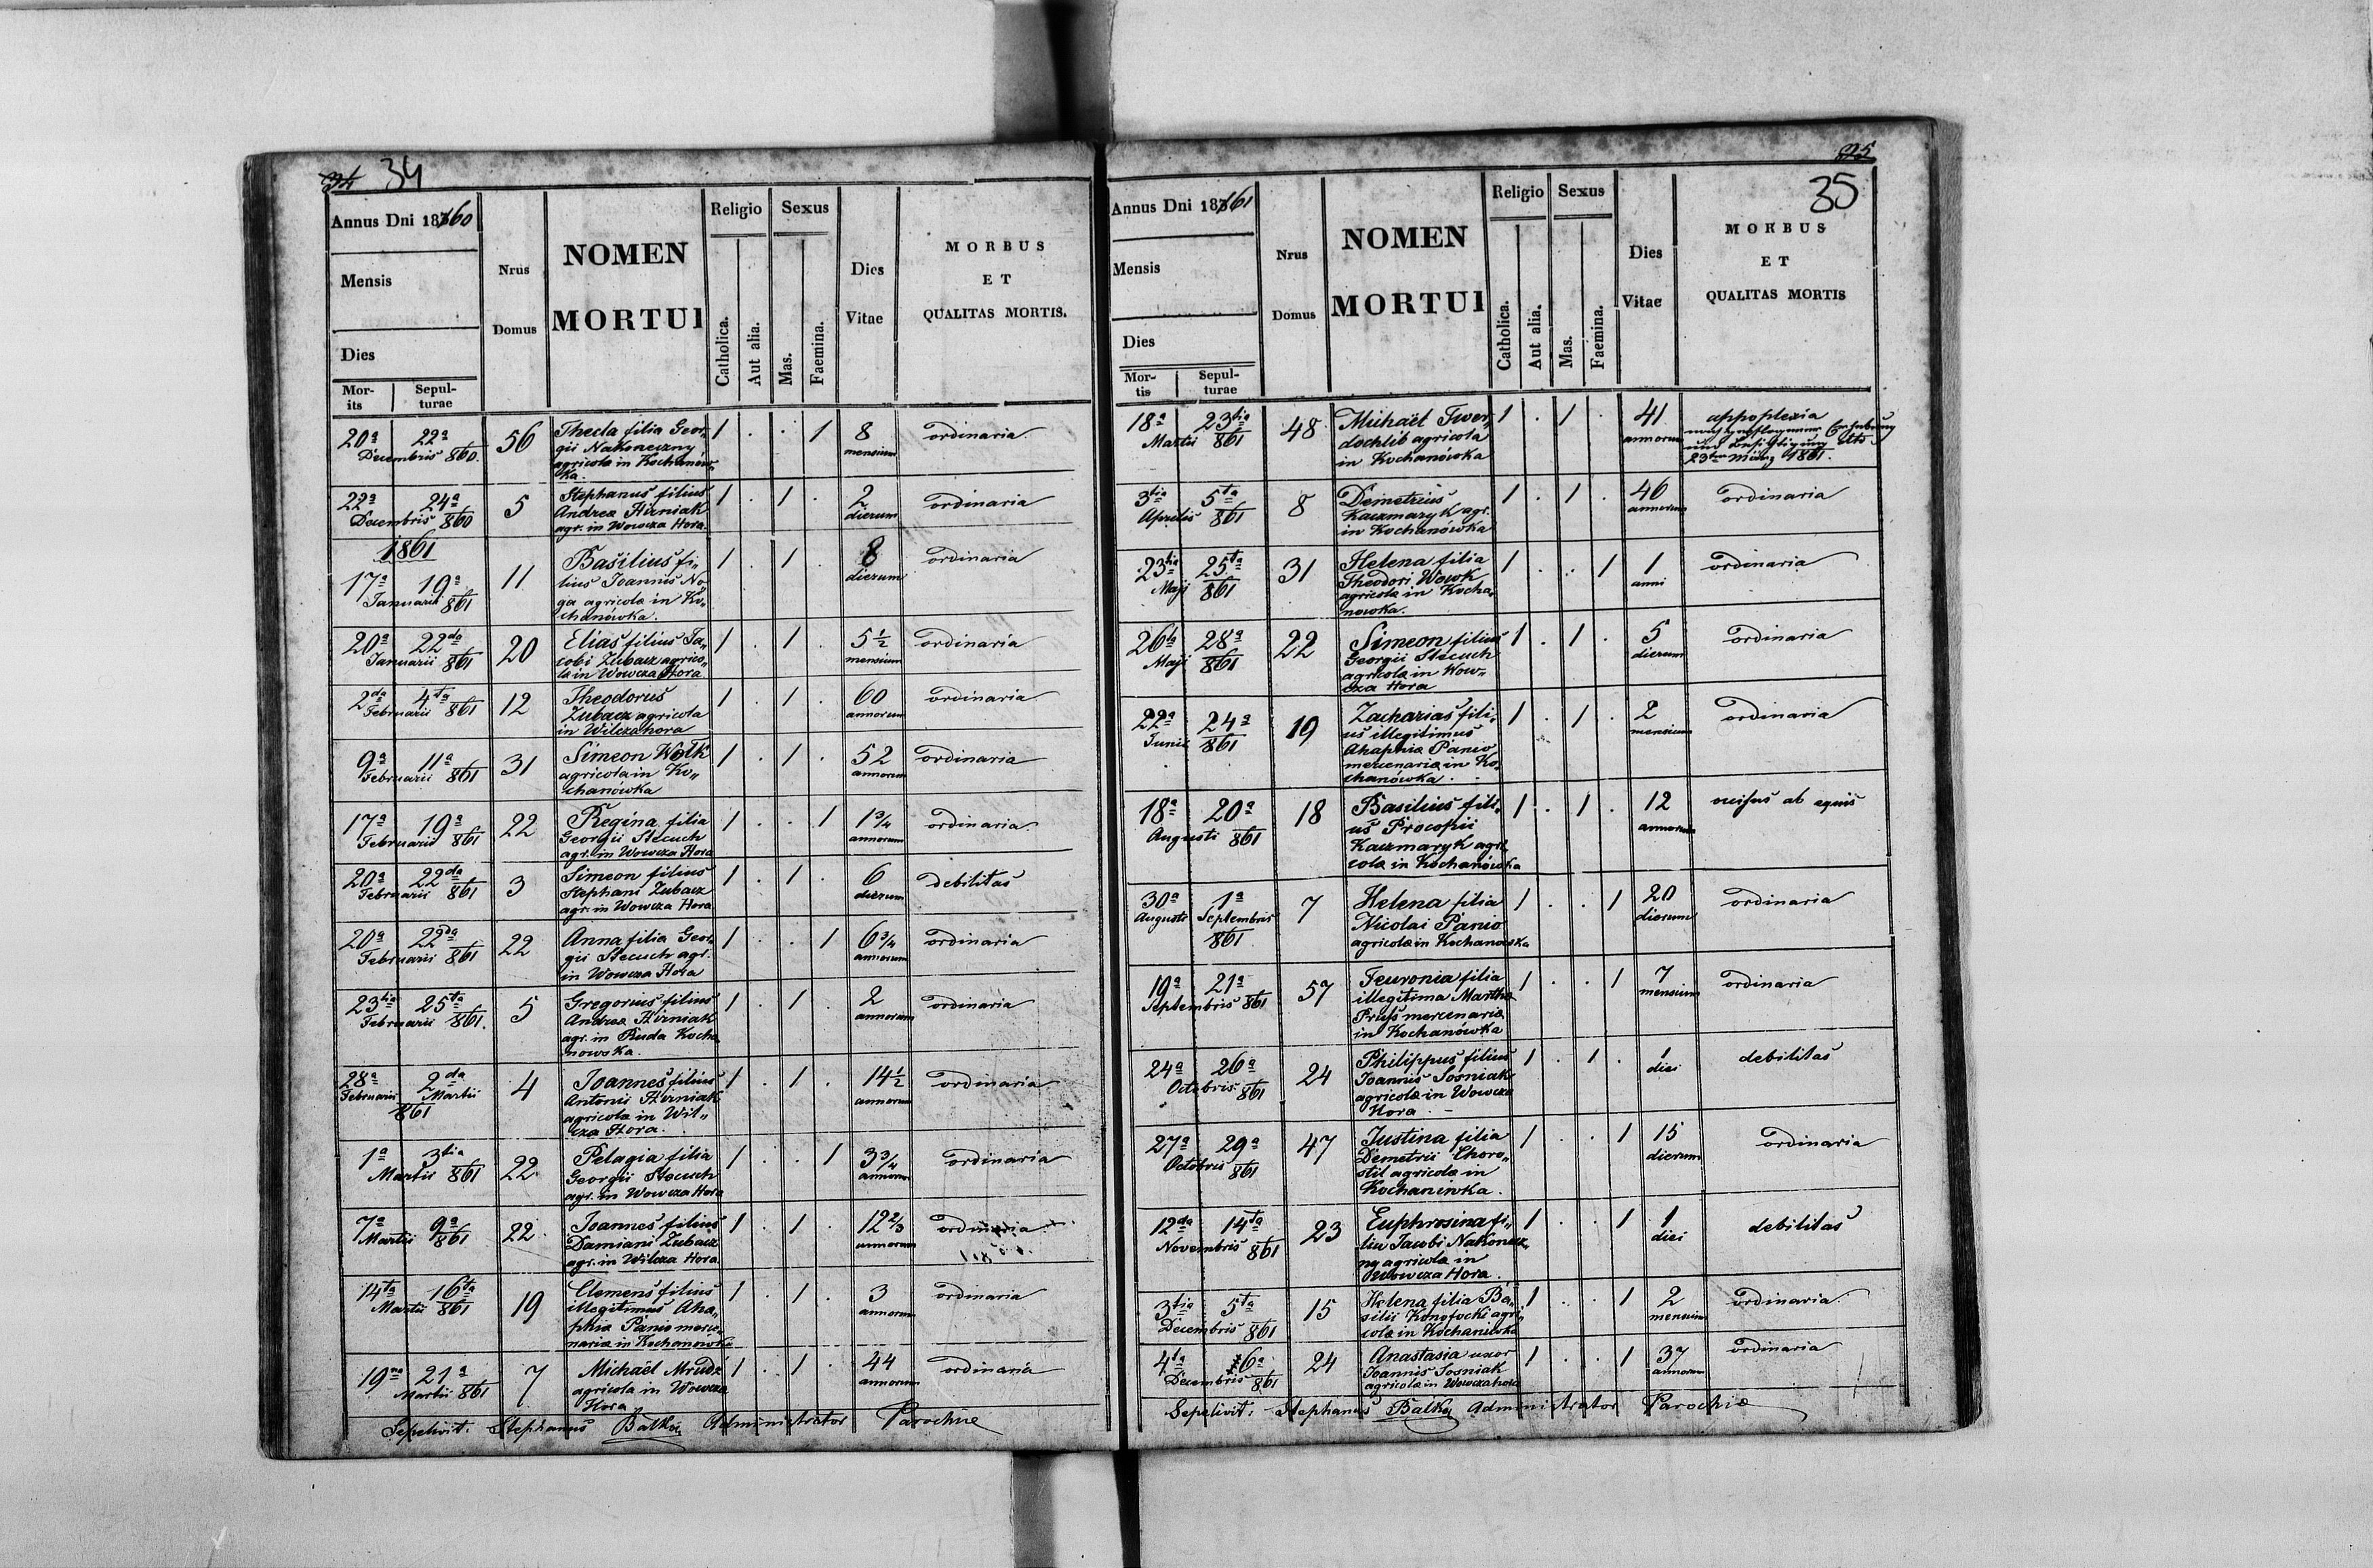 34 34
Annus Dni 1860
Mensis
Dies
Mor-
its
Sepul-
turae
Nrus
Domus
NOMEN
MORTUI
Religio
Catholica.
Aut alia.
Sexus
Mas.
Faemina.
Dies
Vitae
MORBUS
ET
QUALITAS MORTIS.
20a 22a 56 Thecla filia Geor„ 1 . . 1 8 ordinaria
Decembris 860. gii Nakoneczny mensium
agricola in Kochanów„
ka.
22a 24a 5 Stephanus filius 1 . 1 . 2 ordinaria
Decembris 860 Andrea Hirniak dierum
agr. in Wowcza Hora.
1861
17a 19a 11 Basilius fi„ 1 . 1 . 8 ordinaria
Januarii 861 lius Joannis No„ dierum
ga agricola in Ko„
chanówka.
20a 22da 20 Elias filius Ja„ 1 . 1 . 5½ ordinaria
Januarii 861 cobi Zubacz agrico„ mensium
la in Wowcza Hora
2da 4ta 12 Theodorus 1 . 1 . 60 ordinaria
Februarii 861 Zubacz agricola annorum
in Wilcza hora
9a 11a 31 Simeon Wołk 1 . 1 . 52 ordinaria
Februarii 861 agricola in Ko„ annorum
chanówka
17a 19a 22 Regina filia 1 . . 1 1¾ ordinaria.
Februarii 861 Georgii Stecuch annorum
agr. in Wowcza Hora
20a 22da 3 Simeon filius 1 . 1 . 6 debilitas
Februarii 861 Stephani Zubacz dierum
agr. in Wowcza Hora
20a 22da 22 Anna filia Geor„ 1 . . 1 6¾ ordinaria
Februarii 861 gii Stecuch agr. annorum
in Wowcza Hora
23tia 25ta 5 Gregorius filius 1 . 1 . 2 ordinaria
Februarii 861. Andrea Hirniak annorum
agr. in Ruda Kocha„
nowska.
28a 2da 4 Joannes filius 1 . 1 . 14½ ordinaria
Februarii Martii Antonii Hirniak annorum
861 agricola in Wil„
cza Hora.
1a 3tia 22 Pelagia filia 1 . . 1 3¾ ordinaria
Martii 861 Georgii Stecuch annorum
agr. in Wowcza Hora
7a 9a 22 Joannes filius 1 . 1 . 12⅔ ordinaria
Martii 861 Damiani Zubacz annorum
agr. in Wilcza Hora.
14ta 16ta 19 Clemens filius 1 . 1 . 3 ordinaria
Martii 861 illegitimus Aha„ annorum
phia Panio merce„
naria in Kochanówka
19na 21a 7 Michaël Mrudz 1 . 1 . 44 ordinaria
Martii 861 agricola in Wowcza annorum
Hora
Sepelivit: Stephanus Balko Administrator Parochiæ
35
35
Annus Dni 1861
Mensis
Dies
Mor-
tis
Sepul-
turae
Nrus
Domus
NOMEN
MORTUI
Religio
Catholica.
Aut alia.
Sexus
Mas.
Faemina.
Dies
Vitae
MORBUS
ET
QUALITAS MORTIS
18a 23tia 48 Michaël Twer„ 1 . 1 . 41 appoplexia
Martii 861 dochlib agricola annorum
in Kochanówka und Besichtigung dto
23ten März 1861.
3tia 5ta 8 Demetrius 1 . 1 . 46 ordinaria
Aprilis 861 Kaczmaryk agr. annorum
in Kochanówka
23tia 25ta 31 Helena filia 1 . . 1 1 ordinaria
Maji 861 Theodori Wowk anni
agricola in Kocha„
nowka.
26ta 28a 22 Simeon filius 1 . 1 . 5 ordinaria
Maji 861 Georgii Stecuch dierum
agricola in Wow„
cza Hora
22a 24a 19 Zacharias fili„ 1 . 1 . 2 ordinaria
Junii 861 us illegitimus mensium
Ahaphia Panio
mercenaria in Ko„
chanówka.
18a 20a 18 Basilius fili„ 1 . 1 . 12 occisus ab equis
Augusti 861 us Procopii annorum
Kaczmaryk agri„
cola in Kochanówka
30a 1a 7 Helena filia 1 . . 1 20 ordinaria
Augusti Septembris Nicolai Panio dierum
861 agricola in Kochanowka
19a 21a 57 Feuronia filia 1 . . 1 7 ordinaria
Septembris 861 illegitima Martha mensium
Prus mercenaria
in Kochanówka
24a 26a 24 Philippus filius 1 . 1 . 1 debilitas
Octobris 861 Joannis Sosniak diei
agricola in Wowcza
Hora.
27a 29a 47 Justina filia 1 . . 1 15 ordinaria
Octobris 861 Demetrii Choro„ dierum
stil agricola in
Kochaniwka.
12da 14ta 23 Euphrosina fi„ 1 . . 1 1 debilitas
Novembris 861 lia Jacobi Nakonecz„ diei
ny agricola in
Wowcza Hora.
3tia 5ta 15 Helena filia Ba„ 1 . . 1 2 ordinaria.
Decembris 861 silii Konofocki agri„ mensium
cola in Kochaniwka
4ta 6a 24 Anastasia uxor 1 . . 1 37 ordinaria
Decembris 861 Joannis Sosniak annorum
agricola in Wowcza hora
Sepelivit: Stephanus Balko Administrator Parochiæ